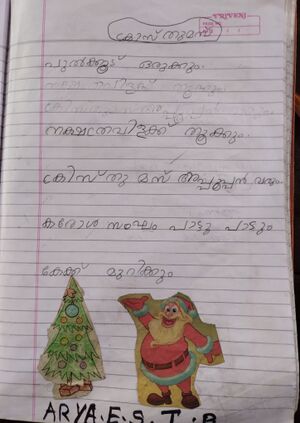 ക്രിസ്തുമസ്
പുൽക്കൂട് ഒരുക്കും.
നക്ഷത്രവിളക്ക് തൂക്കും.
ക്രിസ്തു മസ് അപ്പൂപ്പൻ വരും
കരോൾ സംഘം പാട്ടു പാടും
കേക്ക് മുറിക്കും
ARYA.E.S.T.B